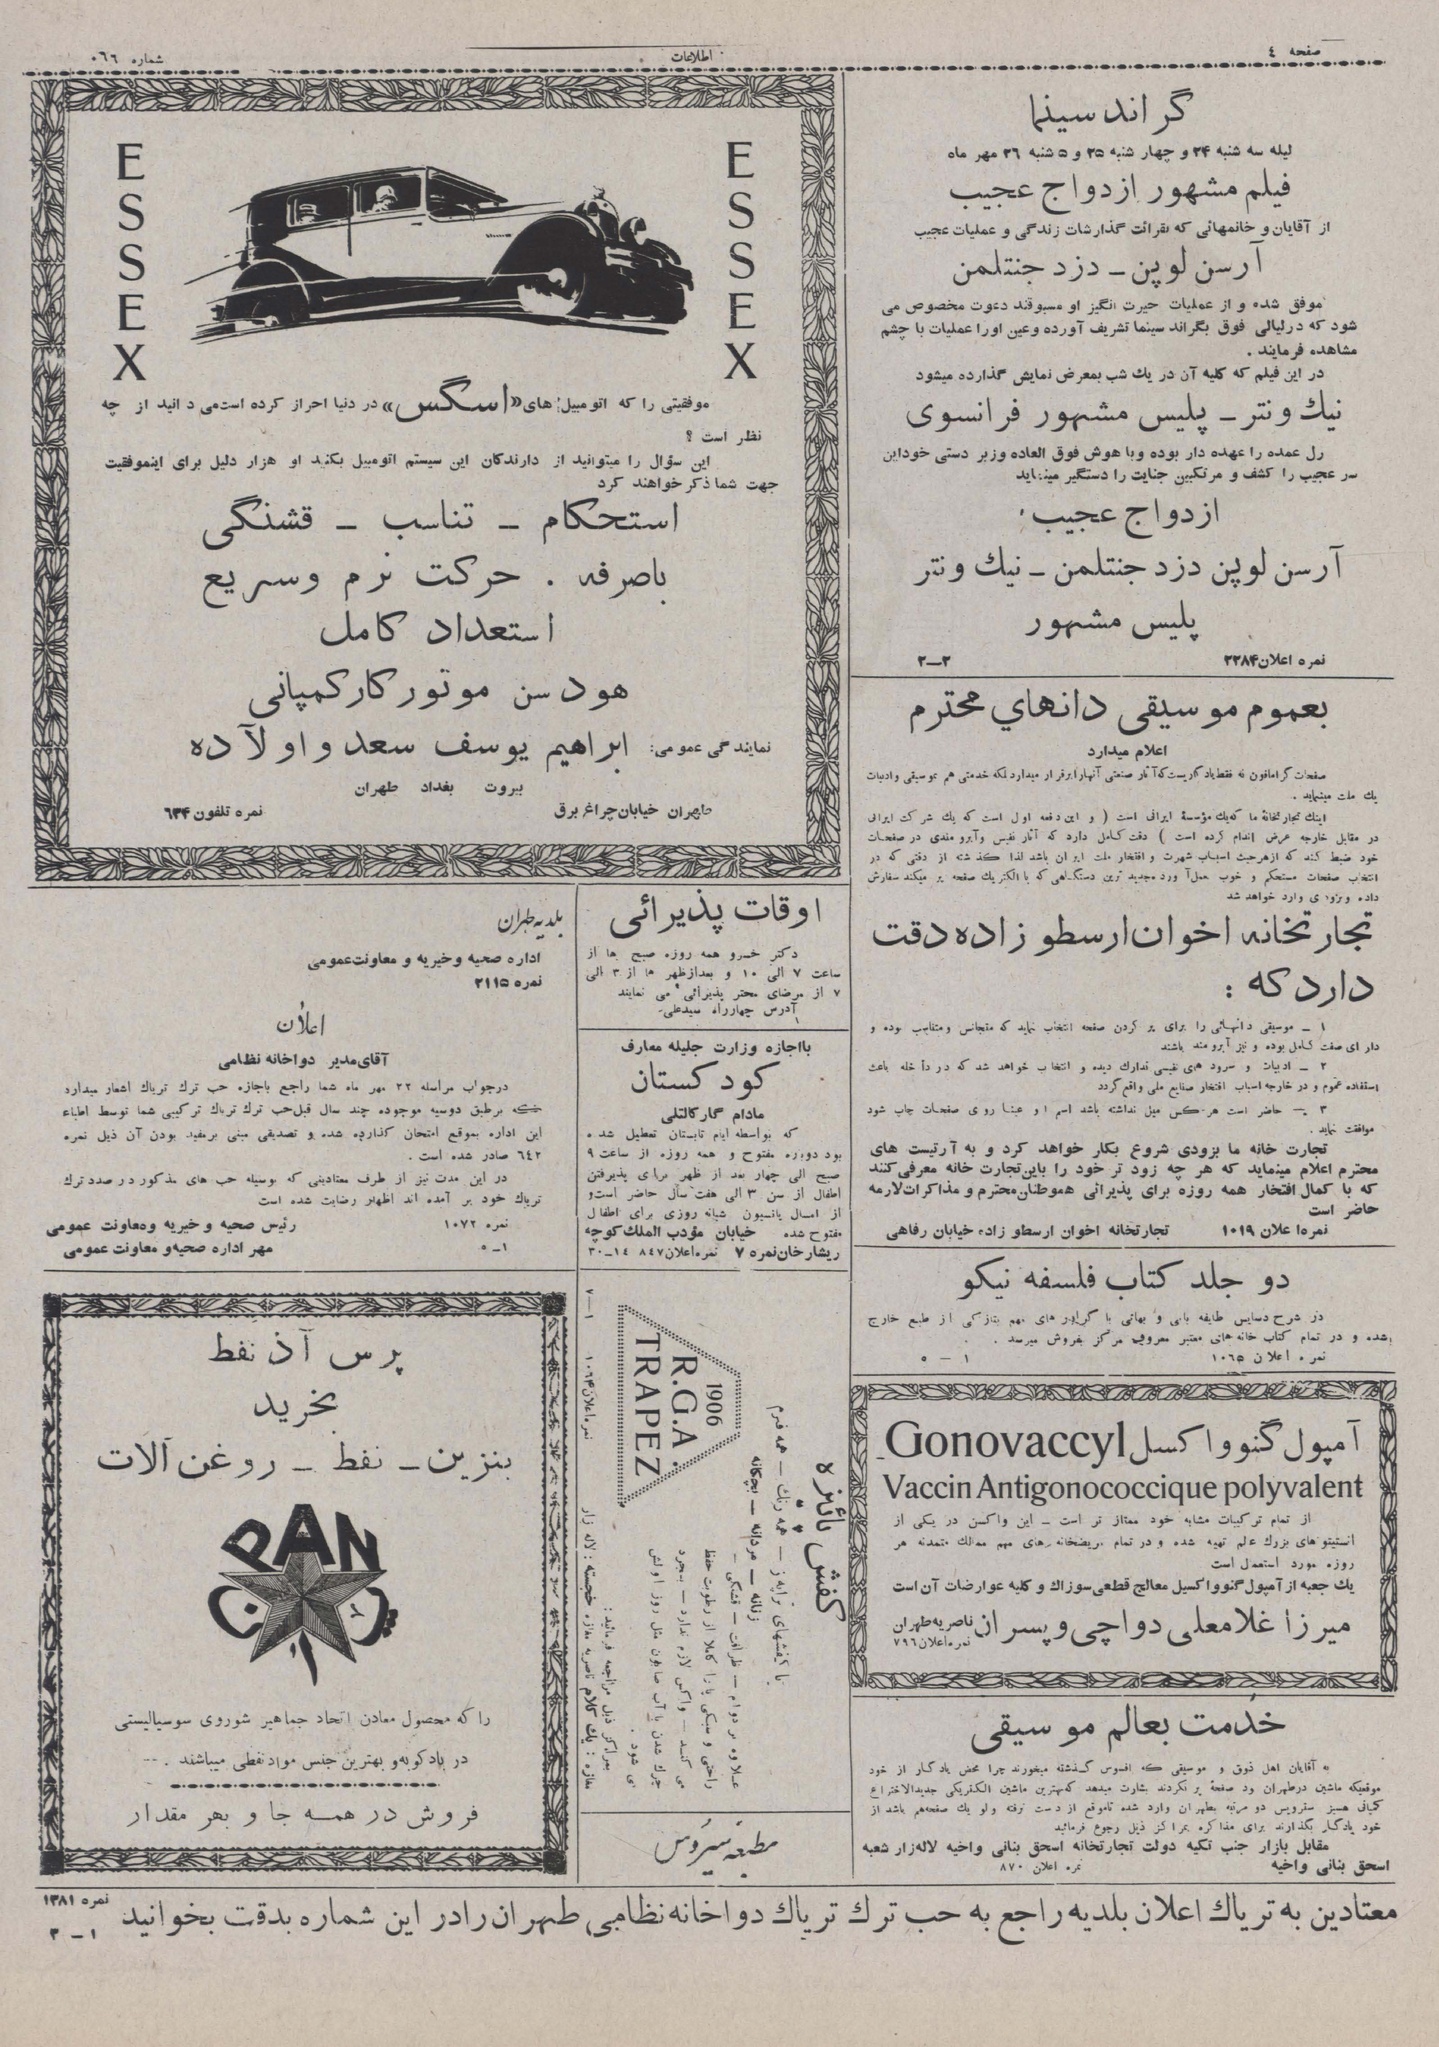 صفحه ٤
اطلاعات
شماره ٠٦٦
گراند سینما
لیله سه شنبه ۲۴ و چهار شنبه ۲۵ و ۵ شنبه ۲۶ مهر ماه
فیلم مشهور ازدواج عجیب
از آقایان و خانمهائی که بقرائت گذارشات زندگی و عملیات عجیب
آرسن لوپن ــ دزد جنتلمن
موفق شده و از عملیات حیرت انگیز او مسبوقند دعوت مخصوص می
شود که درلیالی فوق بگراند سینما تشریف آورده وعین اورا عملیات با چشم
مشاهده فرمایند .
در این فیلم که کلیه آن در یك شب بمعرض نمایش گذارده میشود
نیك ونتر ــ پلیس مشهور فرانسوی
رل عمده را عهده دار بوده وبا هوش فوق العاده وزبر دستی خوداین
سر عجیب را کشف و مرتکبین جنایت را دستگیر مینماید
ازدواج عجیب
آرسن لوپن دزد جنتلمن ــ نیك ونتر
پلیس مشهور
نمره اعلان ۲۲۸۴ ۲ــ۲
بعموم موسیقی دانهای محترم
اعلام میدارد
صفحات گرامافون نه فقط یادگاریست که آثار صنعتی آنهارا برقرار میدارد بلکه خدمتی هم بموسیقی وادبیات
یك ملت مینماید .
اینك تجارتخانهٔ ما که یك مؤسسهٔ ایرانی است ( و این دفعه اول است که یك شرکت ایرانی
در مقابل خارجه عرض اندام کرده است ) دقت کامل دارد که آثار نفیس وآبرو مندی در صفحات
خود ضبط کند که ازهرحیث اسباب شهرت و افتخار ملت ایران باشد لذا گذشته از دقتی که در
انتخاب صفحات مستحکم و خوب بعمل آورد مجدید ترین دستگاهی که با الکتریك صفحه پر میکند سفارش
داده وبزودی وارد خواهد شد
تجارتخانه اخوان ارسطو زاده دقت
دارد که :
۱ ــ موسیقی دانهائی را برای پر کردن صفحه انتخاب نماید که متجانس ومتناسب بوده و
دارای صفت کامل بوده و نیز آبرو مند باشند
۲ ــ ادبیات و سرود های نفیسی تدارك دیده و انتخاب خواهد شد که در داخله باعث
استفاده عموم و در خارجه اسباب افتخار صنایع ملی واقع گردد
۳ ــ حاضر است هرکس میل نداشته باشد اسم او عینا روی صفحات چاپ شود
موافقت نماید .
تجارت خانه ما بزودی شروع بکار خواهد کرد و به آرتیست های
محترم اعلام مینماید که هر چه زود تر خود را باین تجارت خانه معرفی کنند
که با کمال افتخار همه روزه برای پذیرائی هموطنان محترم و مذاکرات لازمه
حاضر است
نمره اعلان ۱۰۱۹ تجارتخانه اخوان ارسطو زاده خیابان رفاهی
دو جلد کتاب فلسفه نیکو
در شرح دسایس طایفه بابی و بهائی با گراور های مهم بتازگی از طبع خارج
شده و در تمام کتاب خانه های معتبر معروف مرکز بفروش میرسد .
نمره اعلان ۱۰۶۵ ۱ – ۵
آمپول گنوواکسیل Gonovaccyl
Vaccin Antigonococcique polyvalent
از تمام ترکیبات مشابه خود ممتاز تر است ــ این واکسن در یکی از
انستیتوهای بزرك عالم تهیه شده و در تمام مریضخانه های مهم ممالك متمدنه هر
روزه مورد استعمال است
یك جعبه از آمپول گنوواکسیل معالج قطعی سوزاك و کلیه عوارضات آن است
میرزا غلامعلی دواچی و پسران ناصریه طهران
نمره اعلان ۷۹۶
خدمت بعالم موسیقی
به آقایان اهل ذوق و موسیقی که افسوس گذشته میخورند چرا محض یادگار از خود
موقعیکه ماشین درطهران بود صفحهٔ پر نکردند بشارت میدهد که بهترین ماشین الکتریکی جدیدالاختراع
کمپانی هسیز سترویس دو مرتبه بطهران وارد شده تاموقع از دست نرفته ولو یك صفحه هم باشد از
خود یادگار بگذارند برای مذاکره بمراکز ذیل رجوع فرمائید
مقابل بازار جنب تکیه دولت تجارتخانه اسحق بنانی واخیه لاله زار شعبه
اسحق بنانی واخیه نمره اعلان ۸۷۰
ESSEX
ESSEX
موفقیتی را که اتومبیل های «اسگس» در دنیا احراز کرده است می دانید از چه
نظر است ؟
این سؤال را میتوانید از دارندگان این سیستم اتومبیل بکنید او هزار دلیل برای اینموفقیت
جهت شما ذکر خواهند کرد
استحکام ــ تناسب ــ قشنگی
باصرفه . حرکت نرم وسریع
استعداد کامل
هودسن موتورکار کمپانی
نمایندگی عمومی: ابراهیم یوسف سعد واولاده
بیروت بغداد طهران
طهران خیابان چراغ برق نمره تلفون ۶۳۴
اوقات پذیرائی
دکتر خسرو همه روزه صبح ها از
ساعت ۷ الی ۱۰ و بعدازظهر ها از ۳ الی
۷ از مرضای محتر پذیرائی می نمایند
آدرس چهارراه سیدعلی
۱
بااجازه وزارت جلیله معارف
کودکستان
مادام گارکالتلی
که بواسطه ایام تابستان تعطیل شده
بود دوباره مفتوح و همه روزه از ساعت ۹
صبح الی چهار بعد از ظهر برای پذیرفتن
اطفال از سن ۳ الی هفت سال حاضر است و
از امسال پانسیون شبانه روزی برای اطفال
مفتوح شده خیابان مؤدب الملك کوچه
ریشارخان نمره ۷ نمره اعلان ۸۴۷ ۱۴ــ۳۰
بلدیه طهران
اداره صحیه و خیریه و معاونت عمومی
نمره ۲۱۱۵
اعلان
آقای مدیر دواخانه نظامی
درجواب مراسله ۲۲ مهر ماه شما راجع باجازه حب ترك تریاك اشعار میدارد
که برطبق دوسیه موجوده چند سال قبل حب ترك تریاك ترکیبی شما توسط اطباء
این اداره بموقع امتحان گذارده شده و تصدیقی مبنی برمفید بودن آن ذیل نمره
٦٤٢ صادر شده است .
در این مدت نیز از طرف معتادینی که بوسیله حب های مذکور در صدد ترك
تریاك خود بر آمده اند اظهار رضایت شده است
نمره ۱۰۷۲ رئیس صحیه و خیریه و معاونت عمومی
۱ــ۵ مهر اداره صحیه و معاونت عمومی
پرس آذ نفط
بخرید
بنزین ــ نفط ــ روغن آلات
PAN
را که محصول معادن اتحاد جماهیر شوروی سوسیالیستی
در بادکوبه و بهترین جنس مواد نفطی میباشفد .
فروش در همه جا و بهر مقدار
کفش پائیزه
زنانه ــ مردانه ــ بچگانه
با کفشهای تراپز ــ همه رنك ــ همه فرم
1906
R.G.A.
TRAPEZ
علاوه بر دوام ــ ظرافت ــ قشنگی ــ
راحتی و سبکی پا را کاملا از رطوبت حفظ
می کنند ــ واکس لازم ندارد ــ بمجرد
چرك شدن با آب صابون مثل روز اولش
می شود .
بمراکز ذیل مراجعه فرمائید :
مغازه : یك کلام ناصریه مغازه خجسته : لاله زار
نمره اعلان ۱۰۶۴ ۱ــ۷
مطبعه سیروس
معتادین به تریاك اعلان بلدیه راجع به حب ترك تریاك دواخانه نظامی طهران رادر این شماره بدقت بخوانید
نمره ۱۳۸۱
۱ــ۳